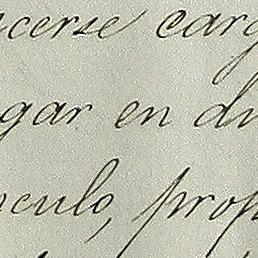 cerse carg
gar en du
culo, prop